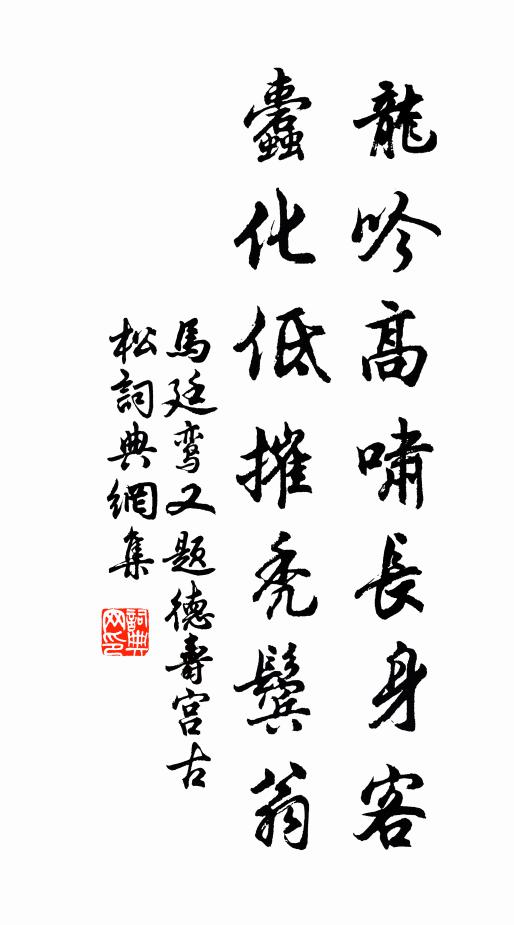 龍吟高嘯長身客
蠹化低摧禿鬢翁
馬廷鸾又题德壽宫古
松詞典網集
詞典网印